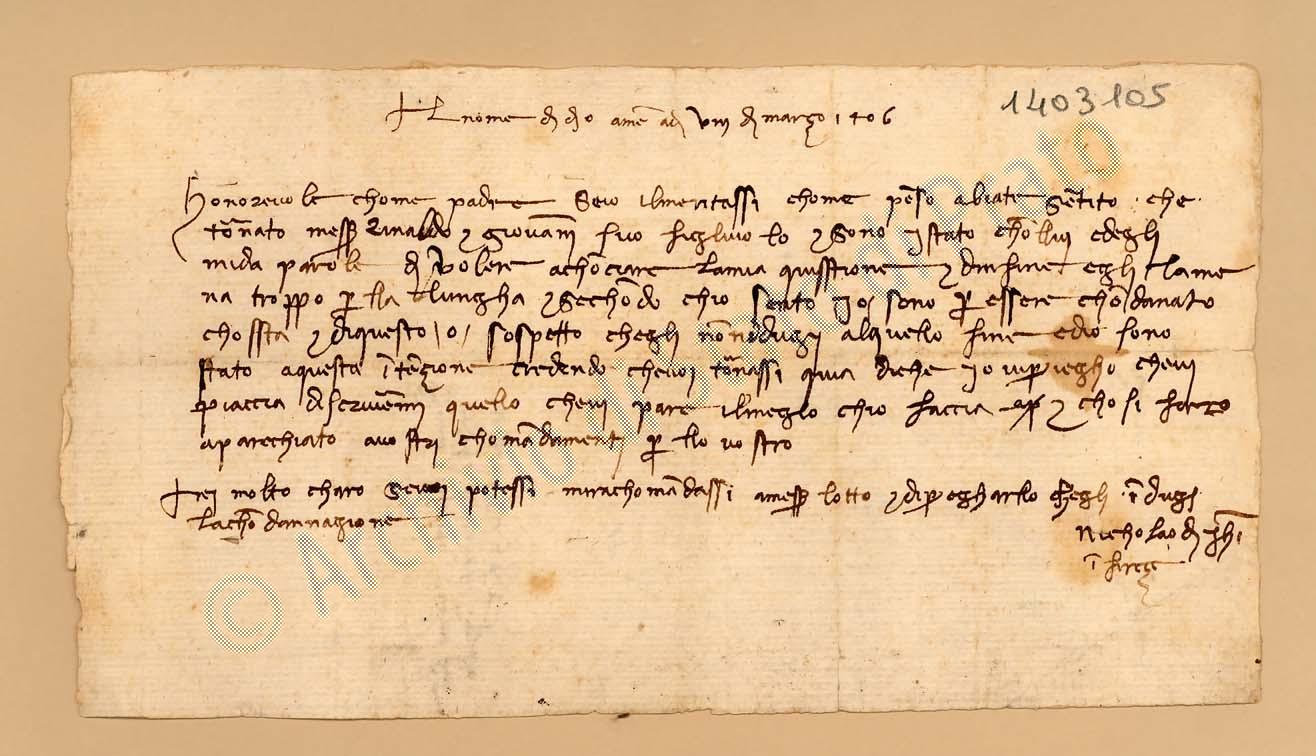 1403105
Al nome di dio ame adi viii di marzo 1406
Honorevole chome padre Se io il meritassi chome pēso abiate sētito che
tornato messer Rinaldo e giovāni suo figluiolo e sono istato chollui ed egli
mi da parole di volere achōciare la mia quistione e di fine egli la me
na troppo per lla lungha e sechōdo chio sento io sono per essere chōdanato
chossta e di questo o sospetto chegli nō mi dugi a quello fine ed io sono
stato a questa ītēzione credendo che voi tornassi qua di che io vi priegho che vi
piaccia di scrivermi quello che vi pare il meglo chio faccia e chosi faro
aparechiato a vostri chomādamenti per llo vostro
Arei molto charo se voi potessi mi rachomādassi a messer lotto e di pregharlo chegli īdugi
la chōdannagione
Nicholao di
ī firēze
© Archivio di Stato di Prato